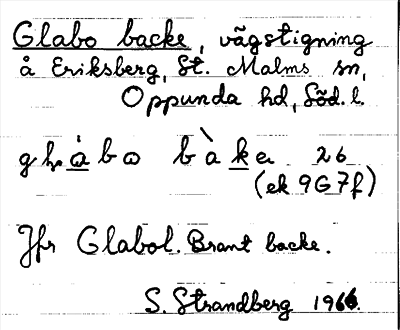 Glabo backe, vägstigning
å Eriksberg, St. Malms sn,
Oppunda hd, Söd. l.
bàkea 26
(ek 9G7f)
Jfr Glabol. Brant backe.
S. Strandberg 1966.